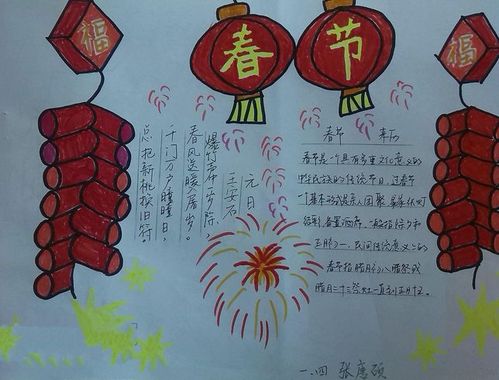 福
春
节
福
元日
王安石
爆竹声中一岁除，
春风送暖
千门万户曈曈日，
总把新桃换旧符
春节 来历
春节是一个具有多重文化意义的
中华民族的传统节日，过春节
一个基本形式是亲人团聚，
结彩，备置酒 一般指除夕和
正月初一，民间传统意义上的
春节指腊月初八腊祭或
腊月二十三祭灶一直到正月十五。
一.四 张唐硕